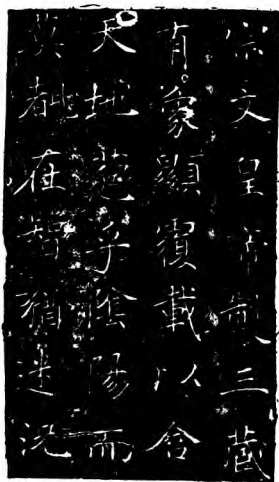 宗文皇帝製三藏
有象顯覆載以含
天地苞乎陰陽而
莫覩在智猶迷況